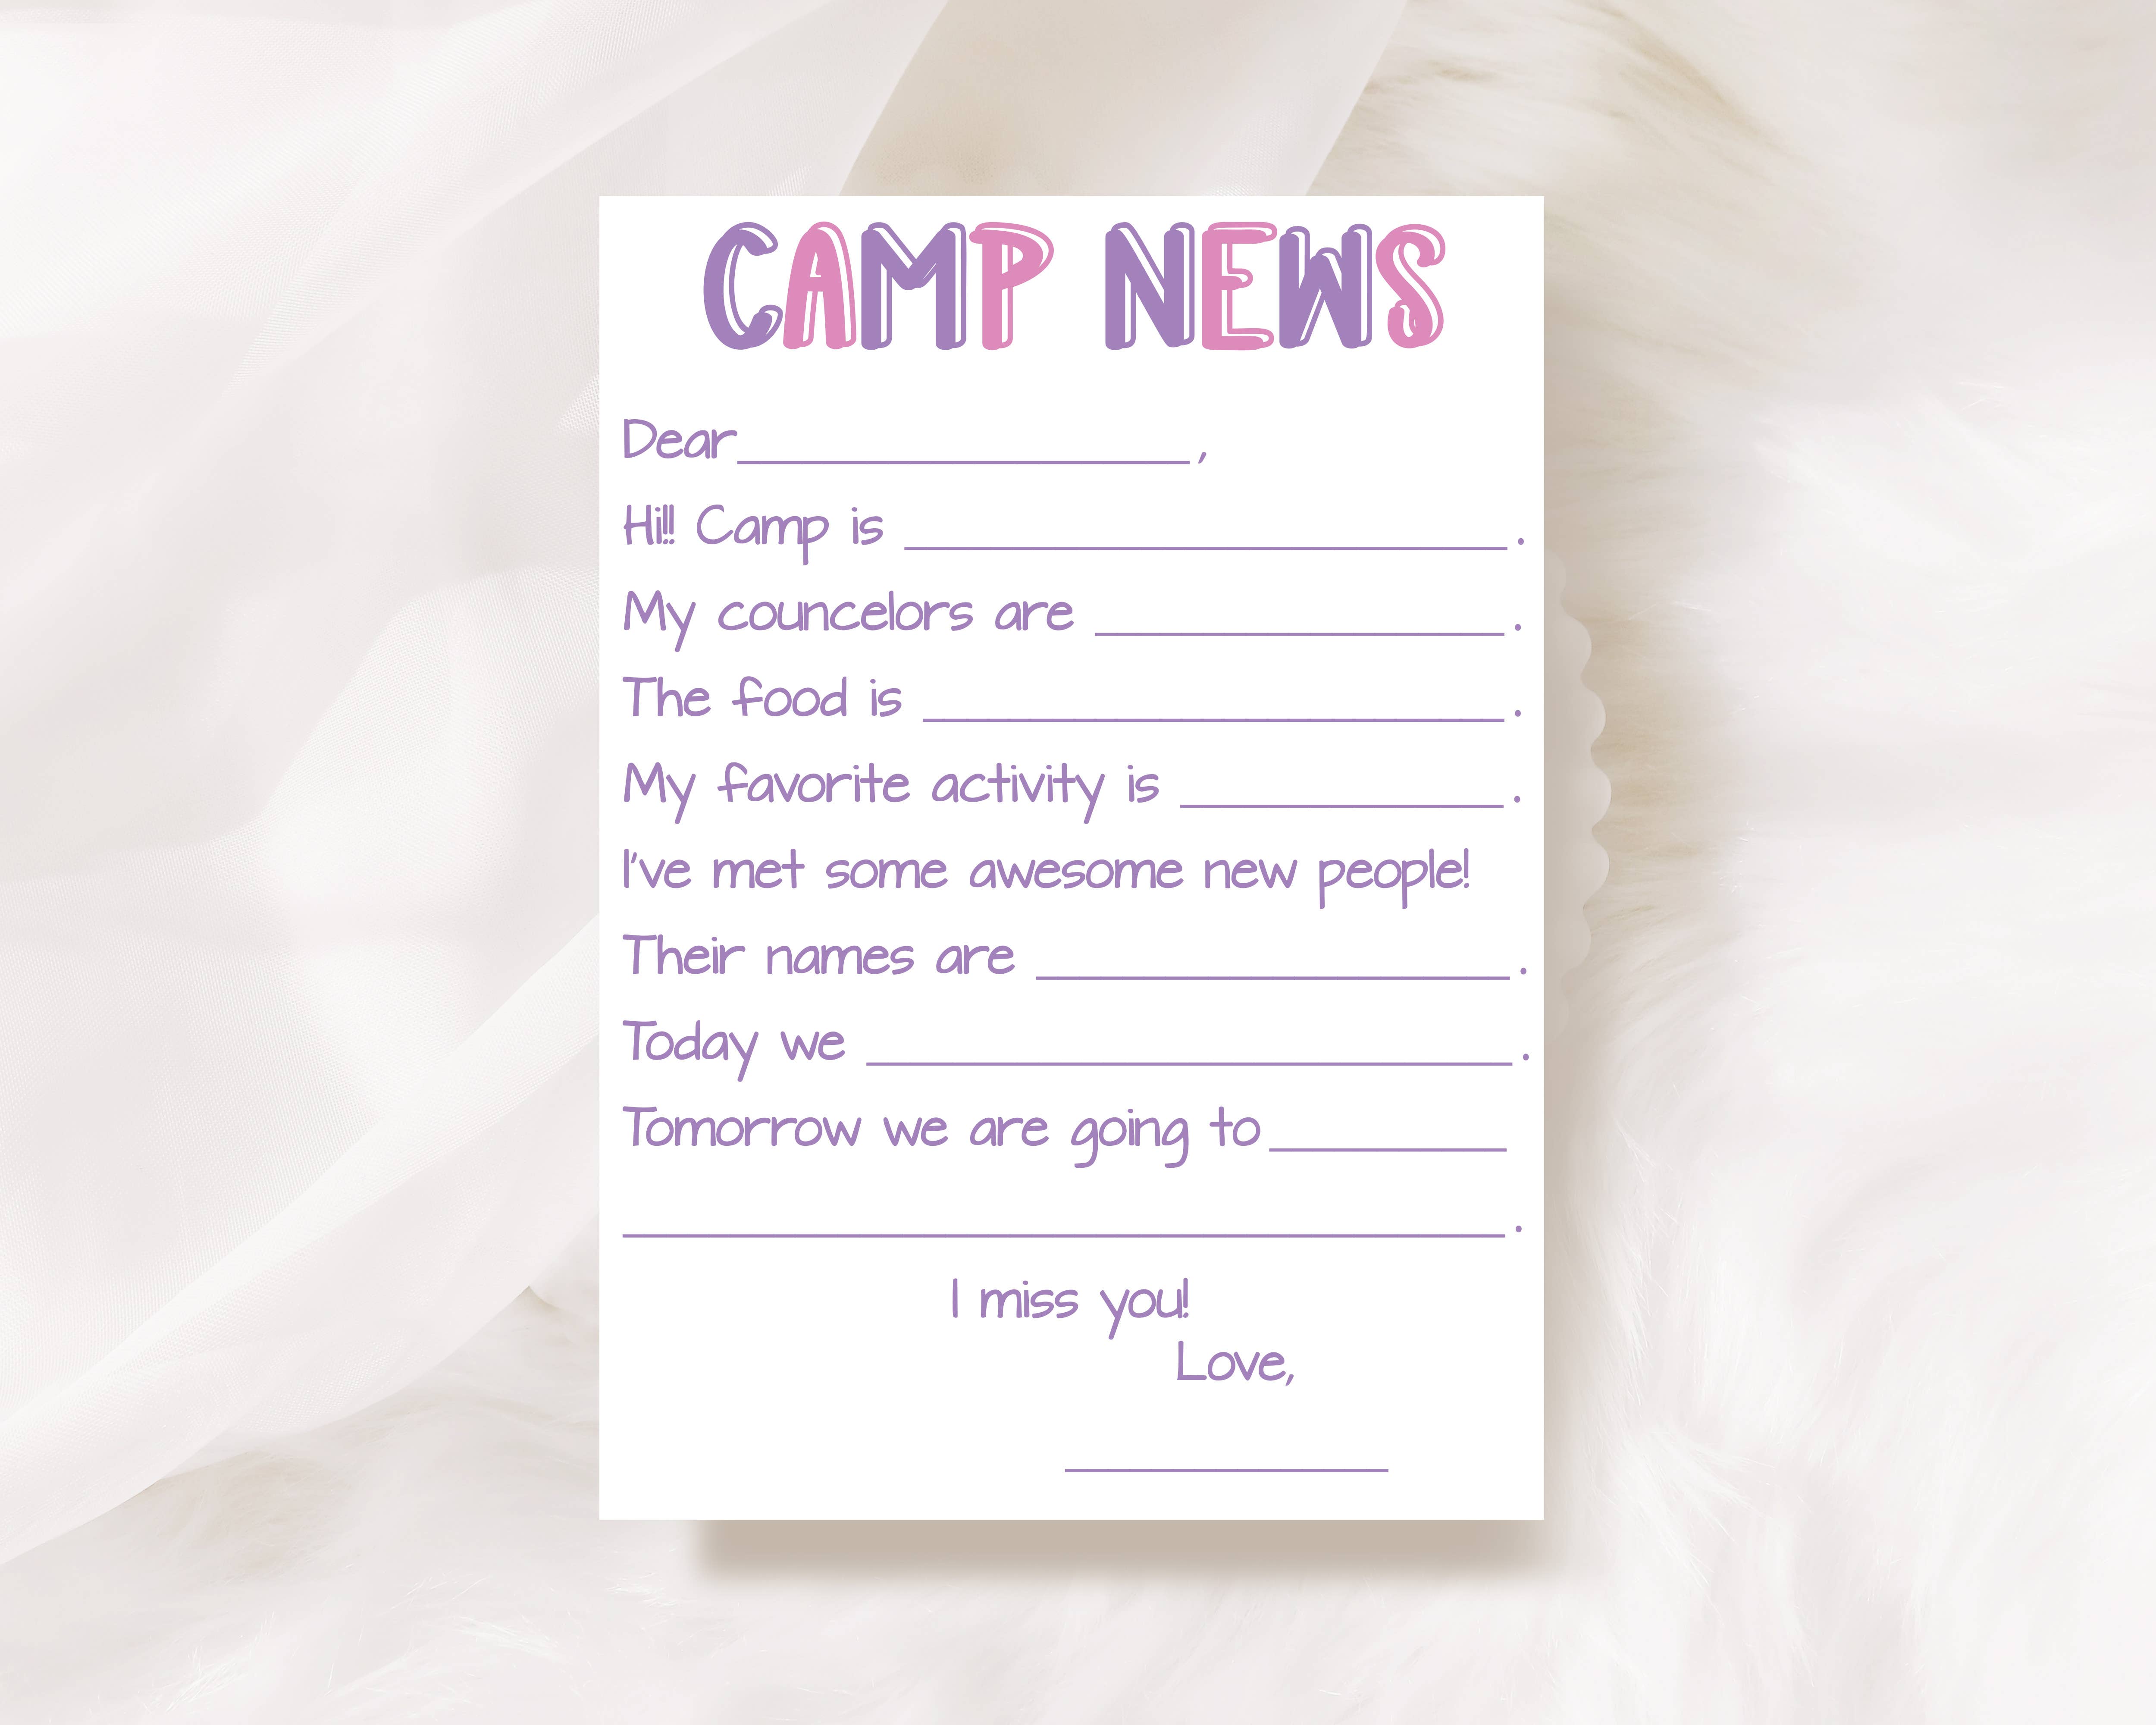 CAMP NEWS
Dear____________________,
Hi!! Camp is ____________________.
My councelors are ____________________.
The food is ____________________.
My favorite activity is ____________________.
I've met some awesome new people!
Their names are ____________________.
Today we ____________________.
Tomorrow we are going to__________
____________________.
I miss you!
Love,
____________________